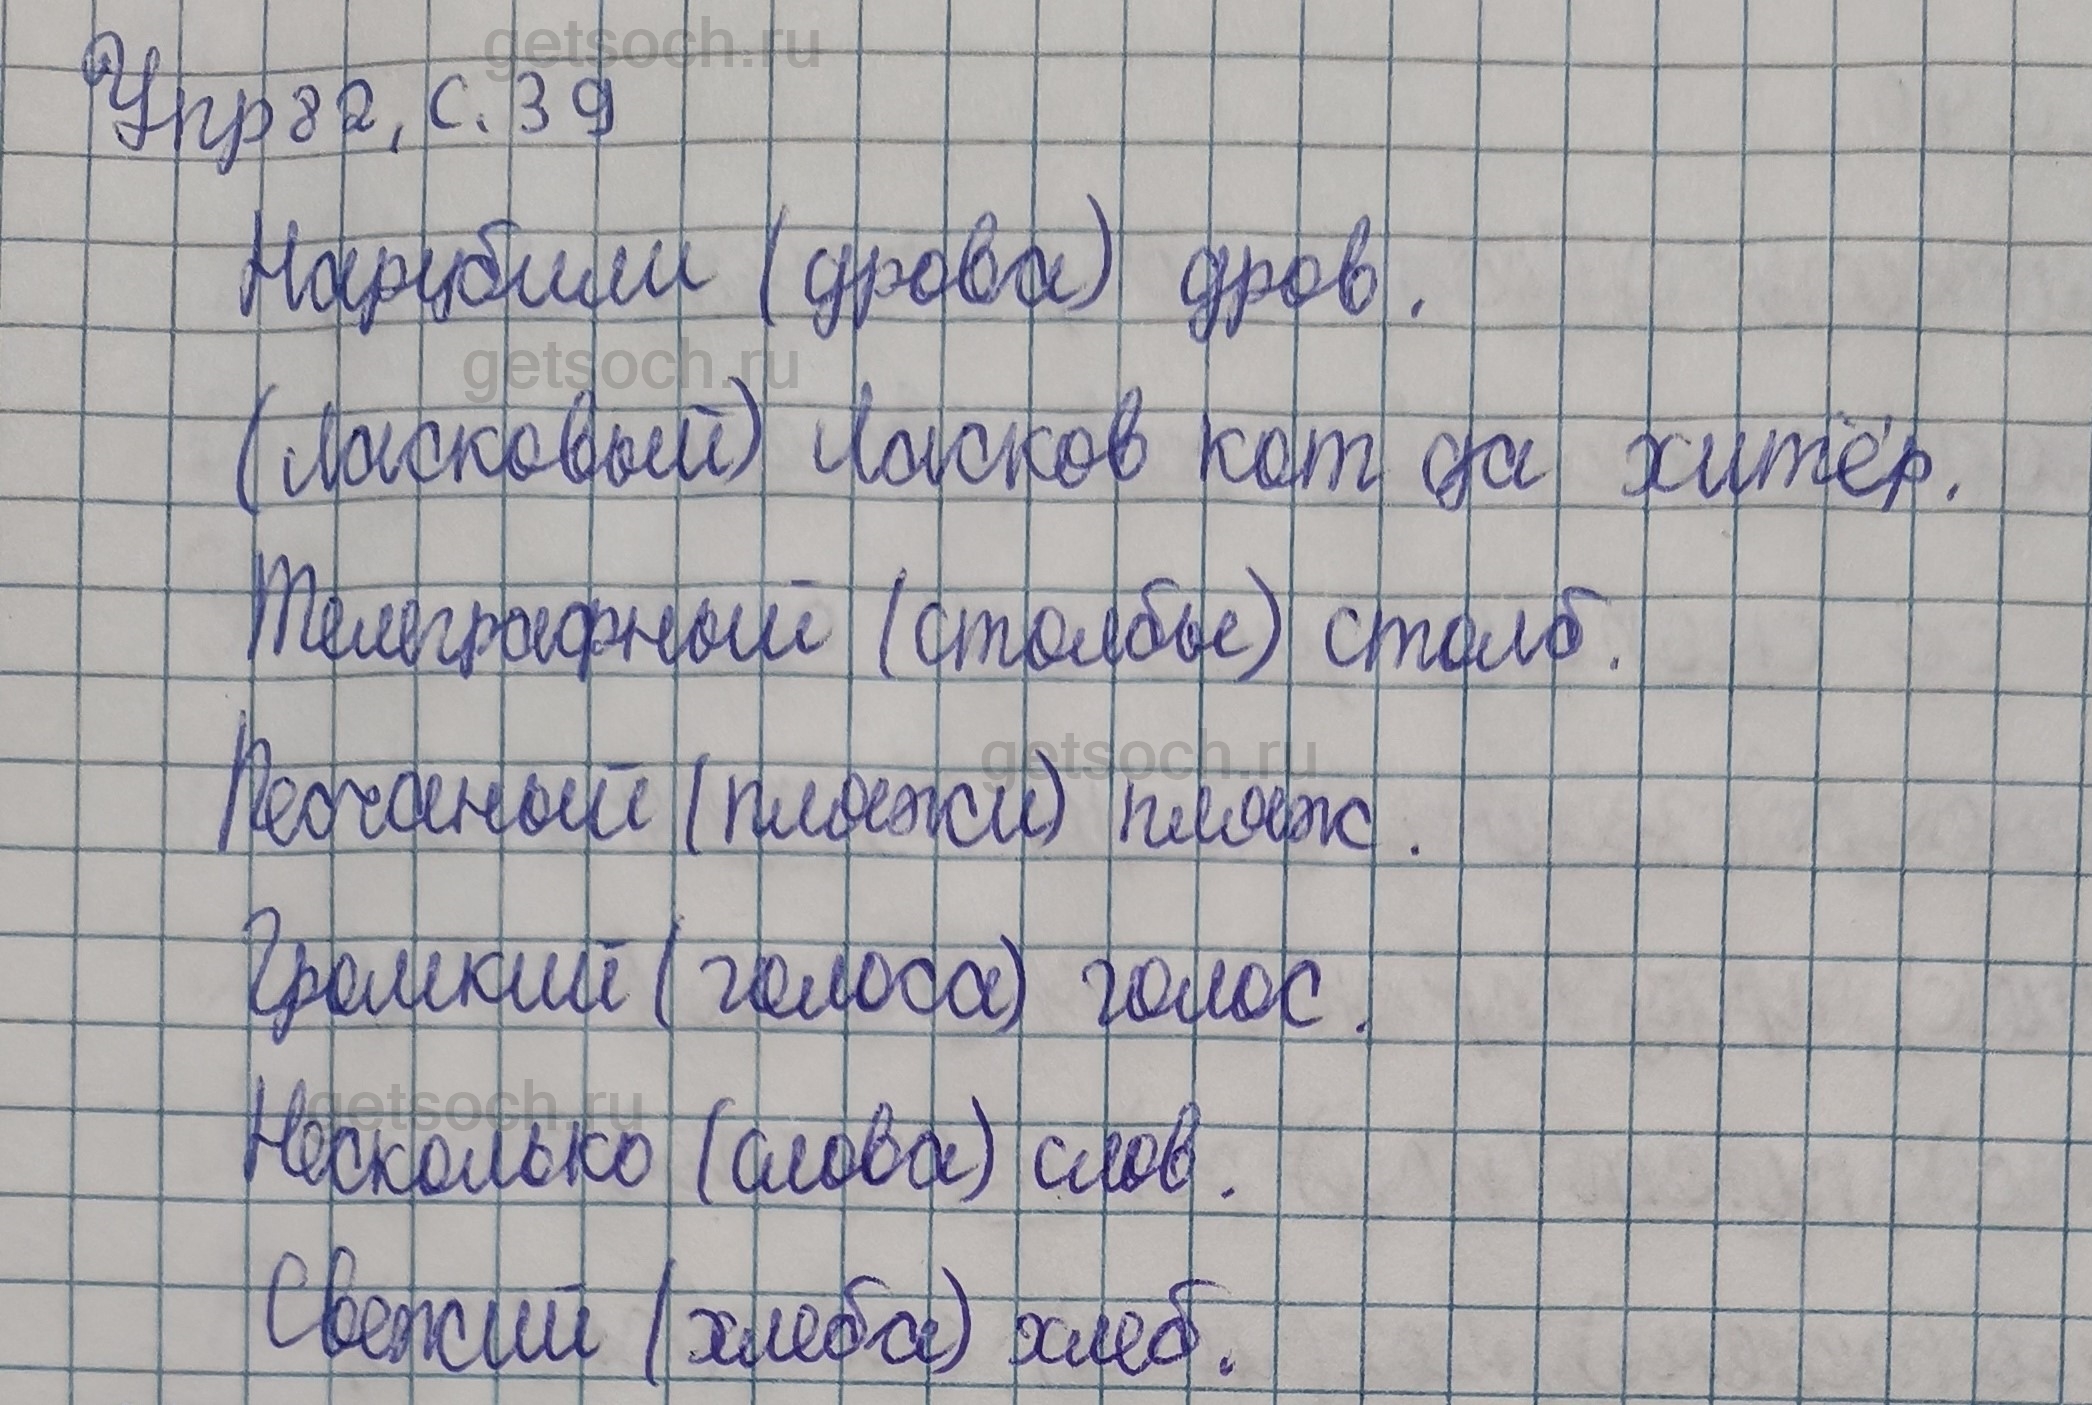 getsoch.ru
Упр 82, с. 39
Нарубили (дрова) дров.
getsoch.ru
(Ласковый) Ласков кот да хитёр.
Телеграфный (столбы) столб.
getsoch.ru
Песчаный (пляжи) пляж.
Громкий (голоса) голос.
getsoch.ru
Несколько (слова) слов.
Свежий (хлеба) хлеб.